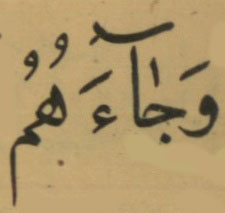 وَجَآءَهُمُ